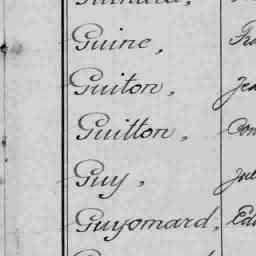 Guine, Fra
Guiton, Jea
Guitton, Con
Guy, Jul
Guyomard, Edu